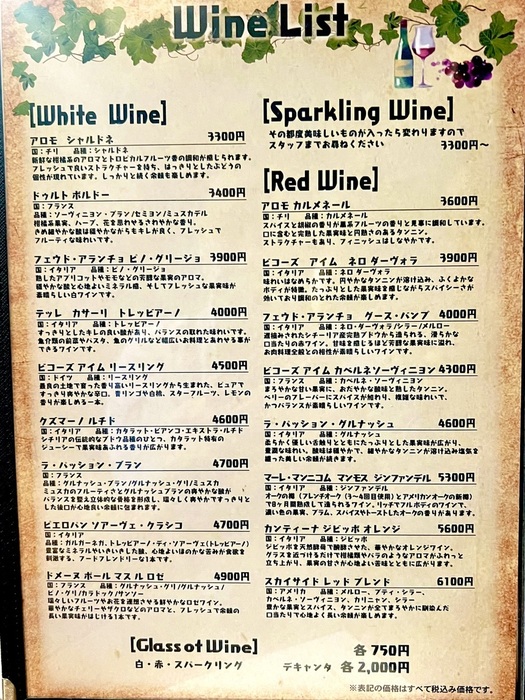 Wine List
[White Wine]
アロモ シャルドネ 3300円
国：チリ 品種：シャルドネ
新鮮な柑橘系のアロマとトロピカルフルーツ香の調和が感じられます。
フレッシュで良いストラクチャーを持ち、はっきりとしたぶどうの
個性が現れています。しっかりと続く余韻も楽しめます。
ドゥルト ボルドー 3400円
国：フランス
品種：ソーヴィニヨン・ブラン/セミヨン/ミュスカデル
柑橘系果実、ハーブ、花を思わせるさわやかな香り。
きめ細やかな酸は穏やかながらもキレが良く、フレッシュで
フルーティな味わいです。
フェウド・アランチョ ピノ・グリージョ 3900円
国：イタリア 品種：ピノ・グリージョ
熟したアプリコットやモモなどの芳醇な果実のアロマ。
穏やかな酸と心地よいミネラル感、そしてフレッシュな果実味が
素晴らしい白ワインです。
テッレ カサーリ トレッビアーノ 4000円
国：イタリア 品種：トレッビアーノ
すっきりとしたキレの良い酸があり、バランスの取れた味わいです。
魚介類の前菜やパスタ、魚のグリルなど幅広いお料理とあわせる事が
できるワインです。
ビコーズ アイム リースリング 4500円
国：ドイツ 品種：リースリング
最良の土地で育った香り高いリースリングから生まれた、ピュアで
すっきり爽やかな辛口。青リンゴや白桃、スターフルーツ、レモンの
香りが楽しめる一本。
クズマーノ ルチド 4600円
国：イタリア 品種：カタラット・ビアンコ・エキストラ・ルチド
シチリアの伝統的なブドウ品種のひとつ、カタラット特有の
ジューシーで果実味あふれる香りが広がります。
ラ・パッション・ブラン 4700円
国：フランス
品種：グルナッシュ・ブラン/グルナッシュ・グリ/ミュスカ
ミュスカのフルーティさとグルナッシュブランの爽やかな酸が
バランスを整え立体的な骨格を形成し、瑞々しく爽やかですっきりと
した後口が心地良い余韻に包まれます。
ピエロパン ソアーヴェ・クラシコ 4700円
国：イタリア
品種：ガルガーネガ、トレッビアーノ・ディ・ソアーヴェ(トレッビアーノ)
豊富なミネラルやいきいきした酸、心地よいほのかな苦みが食欲を
刺激する、フードフレンドリーな1本です。
ドメーヌ ポール マス ル ロゼ 4900円
国：フランス 品種：グルナッシュ・グリ/グルナッシュ/
ピノ・グリ/カラドック/サンソー
瑞々しいフルーツやお花を連想させる鮮やかなロゼワイン。
華やかなチェリーやザクロなどのアロマと、フレッシュで余韻の
長い果実味がはじける1本です。
[Sparkling Wine]
その都度美味しいものが入ったら変わりますので
スタッフまでお尋ねください 3300円～
[Red Wine]
アロモ カルメネール 3600円
国：チリ 品種：カルメネール
スパイスと胡椒の香りが黒系フルーツの香りと見事に調和しています。
口に含むと完熟した果実味と円熟さのあるタンニン。
ストラクチャーもあり、フィニッシュはしなやかです。
ビコーズ アイム ネロ ダーヴォラ 3900円
国：イタリア 品種：ネロ ダーヴォラ
味わいはなめらかです。円やかなタンニンが溶け込み、ふくよかな
ボディが特徴。たっぷりとした果実味を感じながらスパイシーさが
効いており調和のとれた余韻が楽しめます。
フェウド・アランチョ グース・バンプ 4000円
国：イタリア 品種：ネロ・ダーヴォラ/シラー/メルロー
遅摘みされたシチリア産完熟ブドウから造られる、滑らかな
口当たりの赤ワイン。甘味を感じるほど芳醇な果実味に溢れ、
お肉料理全般との相性が素晴らしいワインです。
ビコーズ アイム カベルネソーヴィニヨン 4300円
国：フランス 品種：カベルネ・ソーヴィニヨン
まろやかな甘い果実に、おだやかな酸味と熟したタンニン。
ベリーのフレーバーにスパイスが加わり、複雑な味わいで、
かつバランスが素晴らしいワインです。
ラ・パッション・グルナッシュ 4600円
国：フランス 品種：グルナッシュ
柔らかく優しい舌触りとともにたっぷりとした果実味が広がり、
豊潤な味わい。酸味は穏やかで、細やかなタンニンが溶け込み塩気を
纏った美しい余韻が続きます。
マーレ・マンニコム マンモス ジンファンデル 5300円
国：イタリア 品種：ジンファンデル
オークの樽（フレンチオーク（3～4回目使用）とアメリカンオークの新樽）
で8ヶ月間熟成して造られるワイン。リッチでマルボディのワインで、
濃い色の果実、プラム、スパイスやトーストしたオークの香りがあります。
カンティーナ ジビッボ オレンジ 5600円
国：イタリア 品種：ジビッボ
ジビッボを天然酵母で醗酵させた、華やかなオレンジワイン。
グラスを近づけるだけで柑橘類やバラのようなアロマがふわっと
立ち上がり、果実の甘さが心地よい余韻とともに広がります。
スカイサイド レッド ブレンド 6100円
国：アメリカ 品種：メルロー、プティ・シラー、
カベルネ・ソーヴィニヨン、カリニャン、シラー
豊かな果実とスパイス、タンニンが全てまろやかに馴染んだ
口当たりで心地よく長い余韻が広がります。
[Glass of Wine] 各 750円
白・赤・スパークリング デキャンタ 各 2,000円
※表記の価格はすべて税込み価格です。